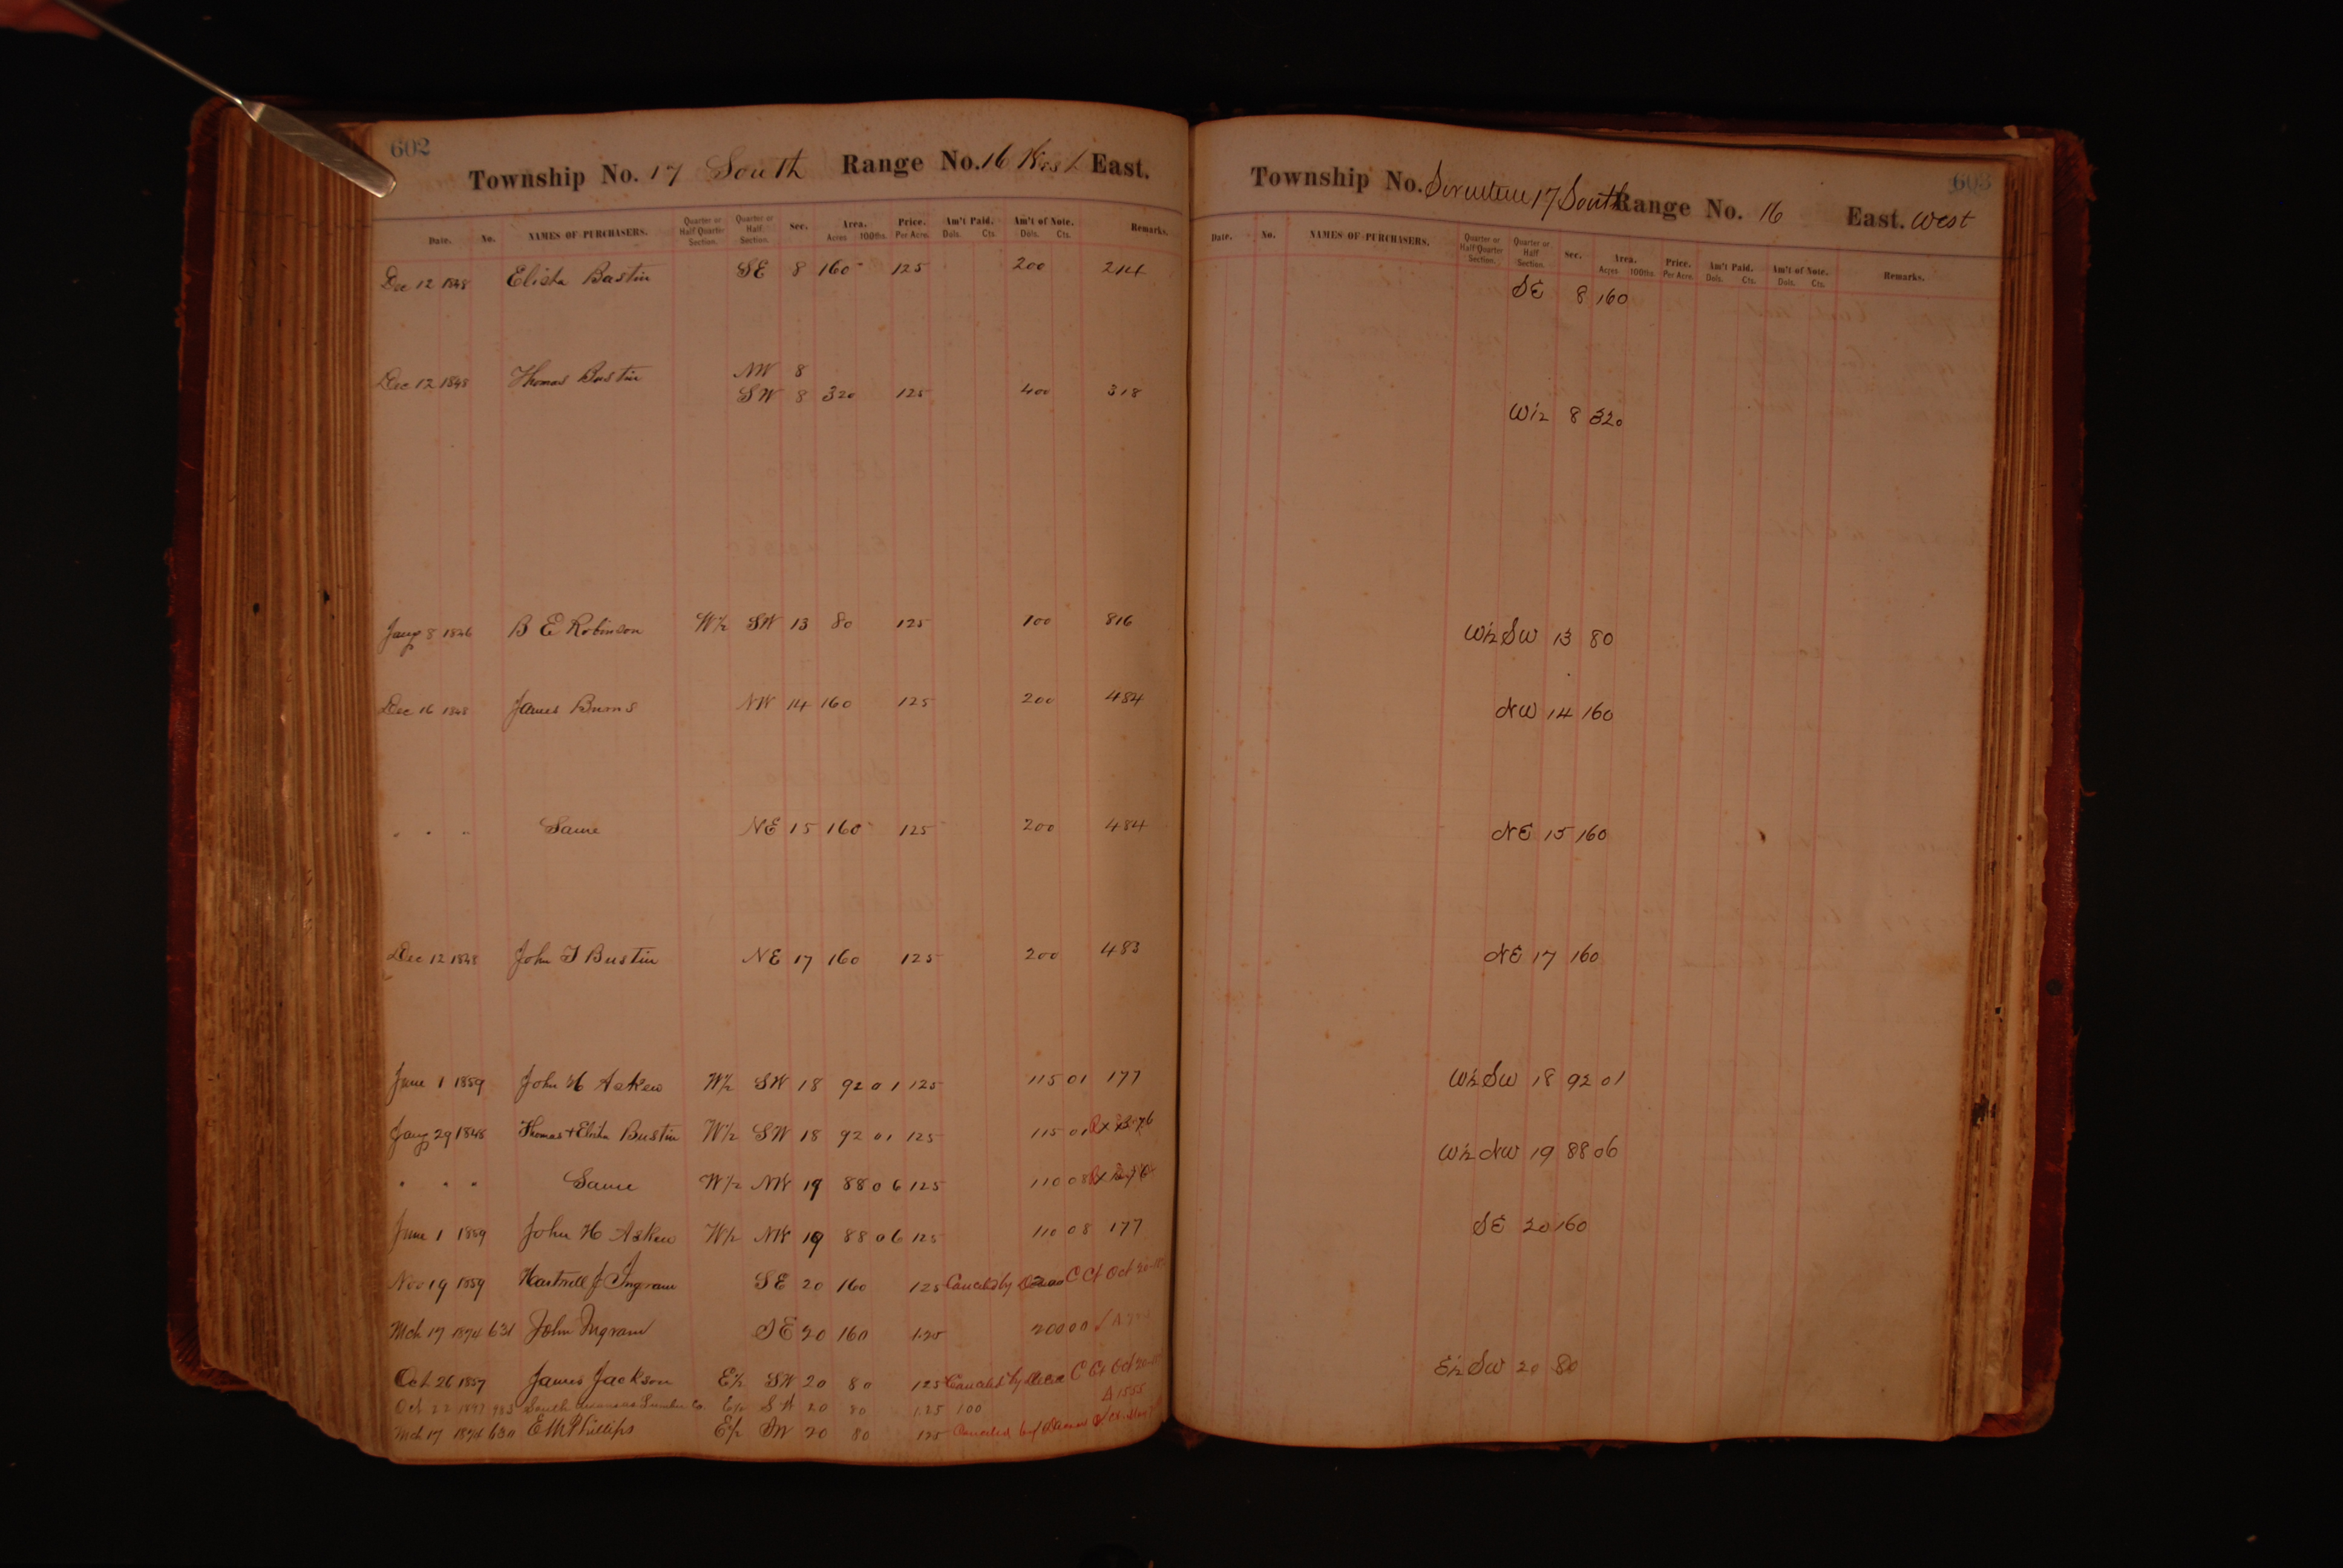 602
Township No. 17 South Range No. 16 West East.
Date. No. NAMES OF PURCHASERS. Quarter or Half Quarter Section. Quarter or Half Section. Sec. Area. Acres 100ths. Price. Per Acre. Am't Paid. Dols. Cts. Am't of Note. Dols. Cts. Remarks.
Dec 12 1848 Elisha Bustin SE 8 160 125 200 214
Dec 12 1848 Thomas Bustin NW 8
SW 8 320 125 400 318
Jany 8 1846 B E Robinson W½ SW 13 80 125 100 816
Dec 16 1848 James Burns NW 14 160 125 200 484
" " " Same NE 15 160 125 200 484
Dec 12 1848 John T Bustin NE 17 160 125 200 483
June 1 1859 John H Askew W½ SW 18 92 01 125 115 01 177
Jany 29 1848 Thomas + Elisha Bustin W½ SW 18 92 01 125 115 01
" " " Same W½ NW 19 88 06 125 110 08
June 1 1859 John H Askew W½ NW 19 88 06 125 110 08 177
Nov 19 1859 Hartwell J Ingram SE 20 160 125 Canceled by 200 C Ct Oct 20
Mch 17 1874 631 John Ingram SE 20 160 125 200 00
Oct 26 1857 James Jackson E½ SW 20 80 125 Canceled by C Ct Oct 20
Oct 22 1897 985 South Arkansas Lumber Co. E½ SW 20 80 1.25 100 A 1555
Mch 17 1874 630 E M Phillips E½ SW 20 80 125 Canceled by Decree
603
Township No. Seventeen 17 South Range No. 16 East. West
Date. No. NAMES OF PURCHASERS. Quarter or Half Quarter Section. Quarter or Half Section. Sec. Area. Acres 100ths. Price. Per Acre. Am't Paid. Dols. Cts. Am't of Note. Dols. Cts. Remarks.
SE 8 160
W½ 8 320
W½ SW 13 80
NW 14 160
NE 15 160
NE 17 160
W½ SW 18 92 01
W½ NW 19 88 06
SE 20 160
E½ SW 20 80